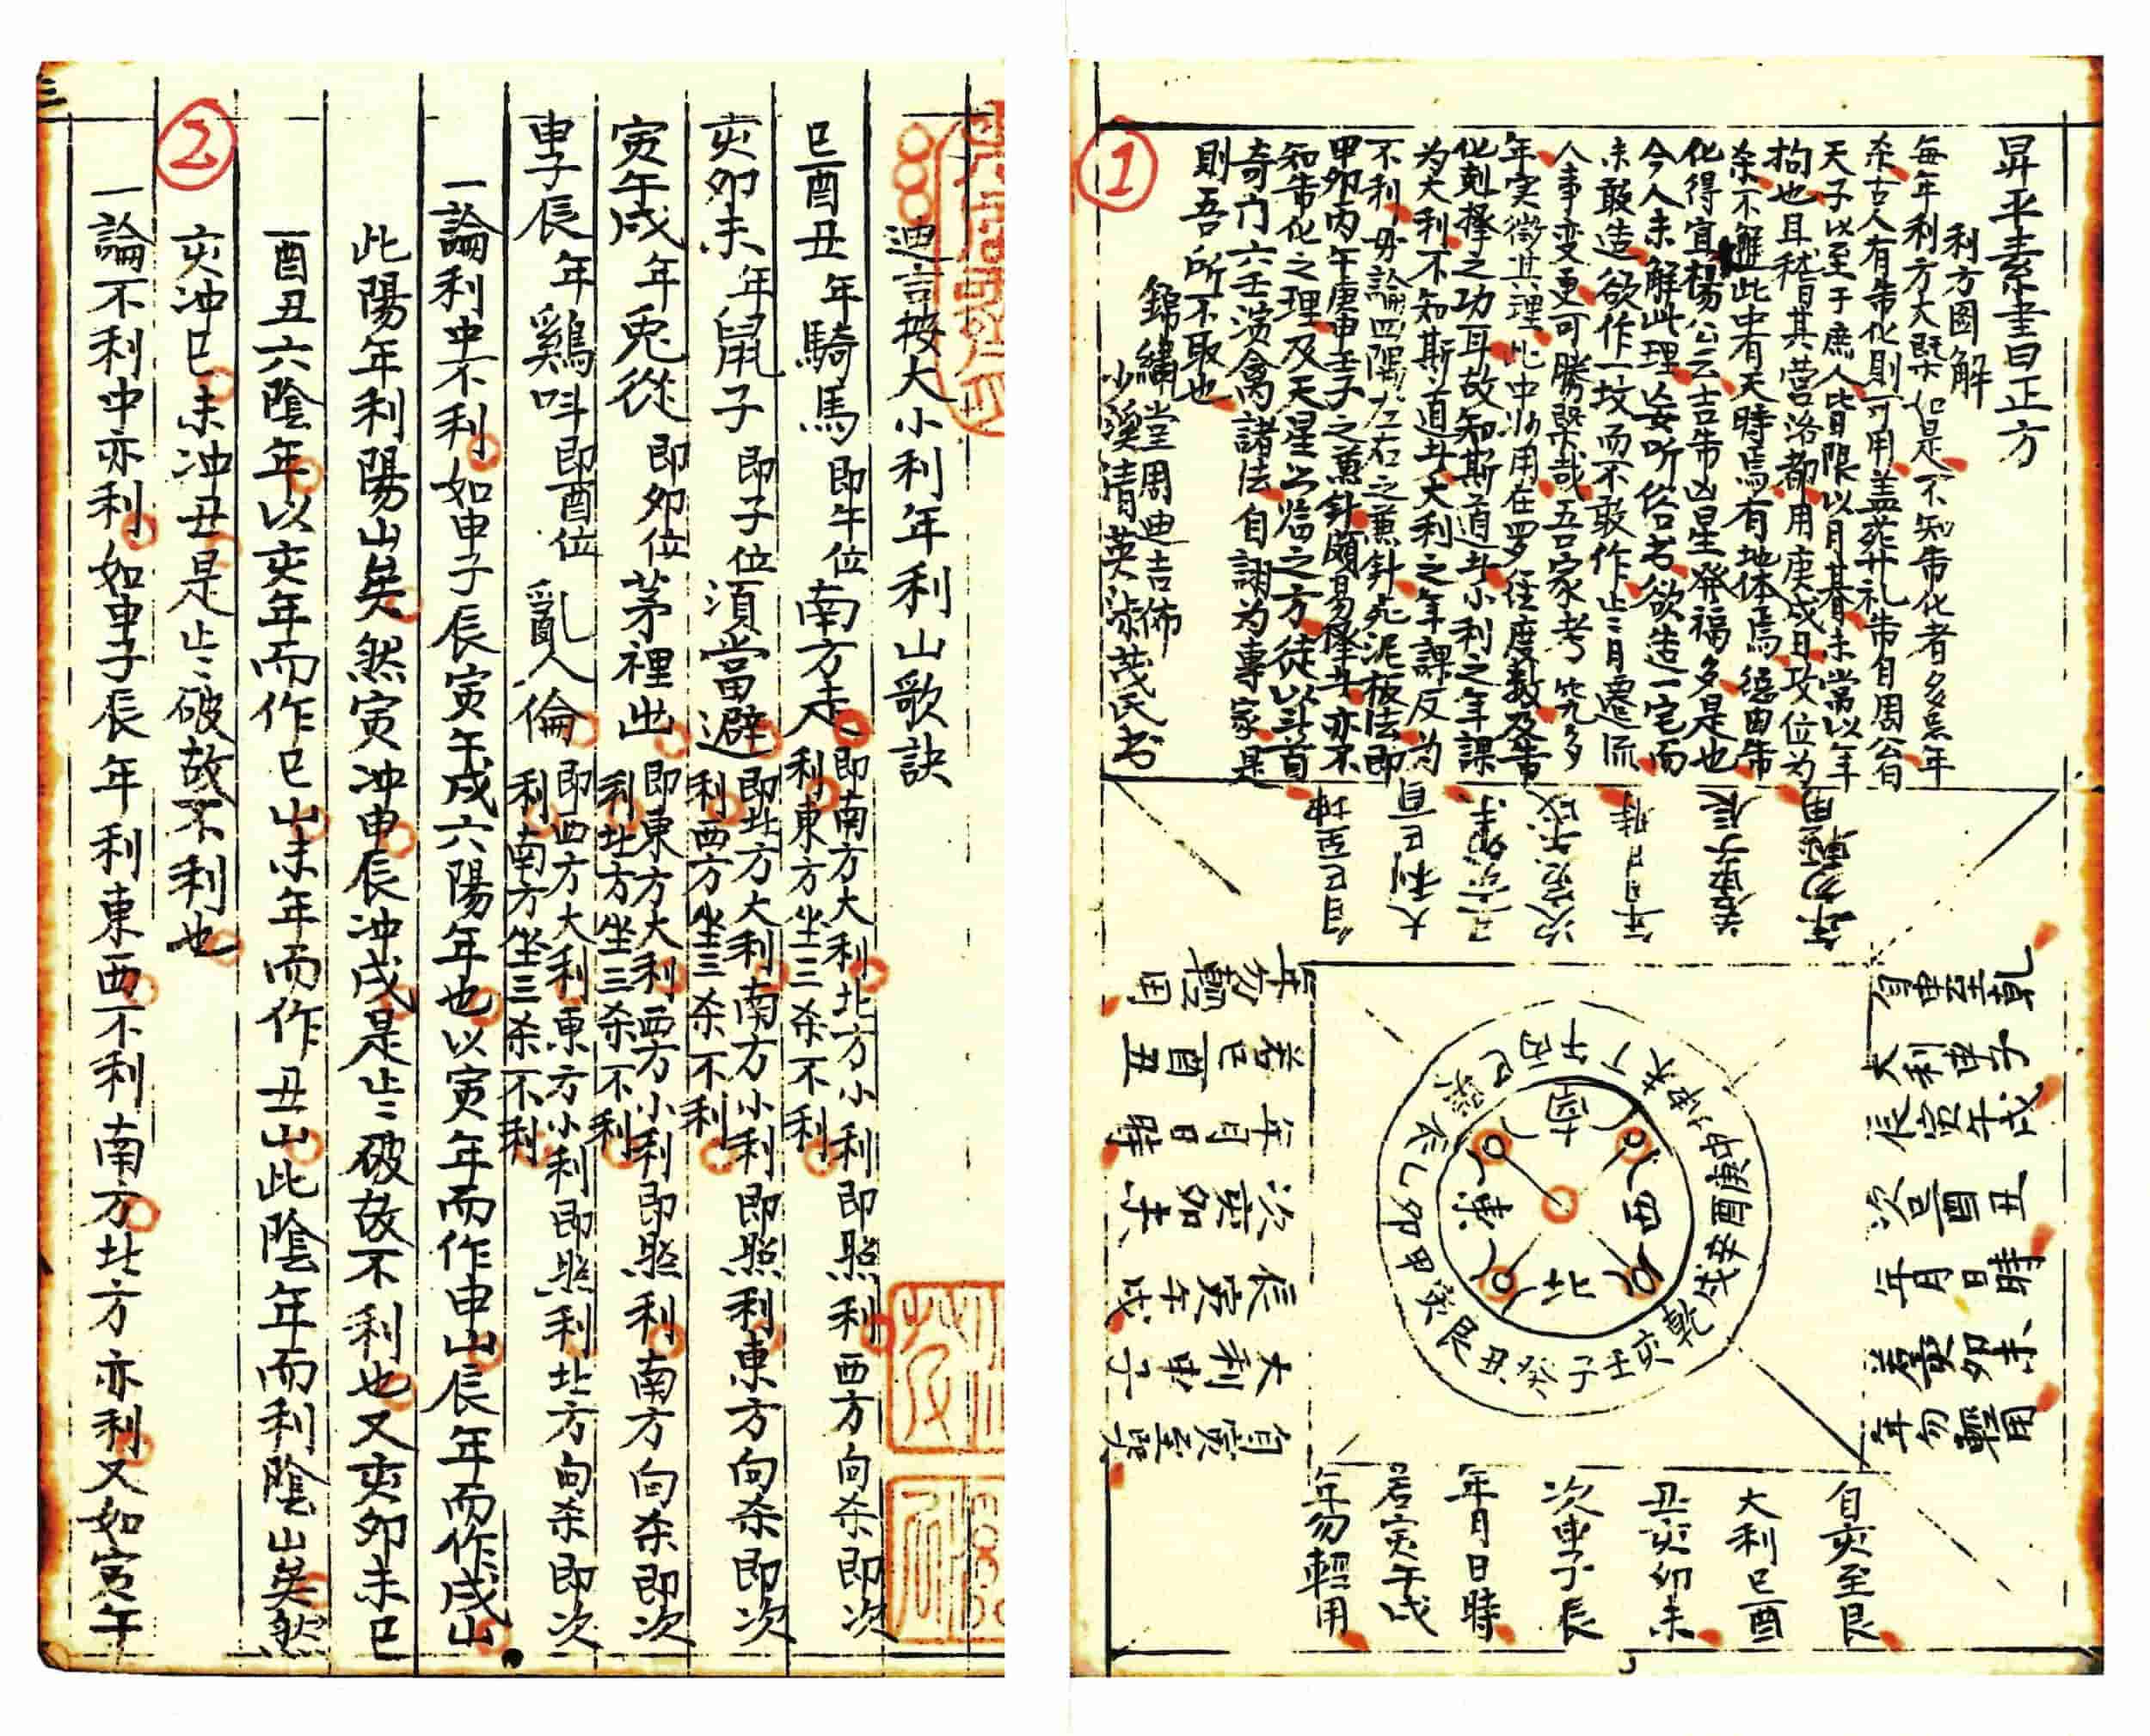 昇平素書曰正方
利方図解
每年利方大槩如是不知制化者多忌年
杀古人有制化則可用盖葬礼制自周公有
天子以至于庶人皆限以月暮未嘗以年
拘也且稽其营洛都用庚戌日攻位为
杀不避此中有天時焉有地体焉德曲制
化得宜楊公云吉制凶星発福多是也
今人未解此理妄听俗书欲造一宅而
未敢造欲作一坟而不敢作止〻月遷流
人事变更可勝槩哉吾家考究多
年实徵其理此中妙用在罗径度数及制
化剋擇之功耳故知斯道者小利之年課
为大利不知斯道者大利之年課反为
不利毋論四隅左右之兼針先泥板法即
甲卯丙午庚申壬子之兼針頗易擇者亦不
知制化之理及天星公临之方徒以斗首
奇门六壬演禽諸法自詡为專家是
則吾所不取也
錦繡堂周迪吉佈
少溪清英
①
自巳至坤
大利巳酉丑亥卯未
次寅午戌
年月日時
若申子辰
年勿輕用
自申至乾
大利申子辰寅午戌
次巳酉丑
年月日時
若亥卯未
年勿輕用
自亥至艮
大利巳酉
丑亥卯未
次申子辰
年月日時
若寅午戌
年勿輕用
自寅至巽
大利申子
辰寅午戌
次亥卯未
年月日時
若巳酉丑
年勿輕用
南
西
北
東
丙午丁未坤申庚酉辛戌乾亥壬子癸丑艮寅甲卯乙辰巽巳
迪言按大小利年利山歌訣
巳酉丑年騎馬即午位南方走即南方大利北方小利即照利西方向杀即次
利東方坐三杀不利
亥卯未年鼠子即子位須當避即北方大利南方小利即照利東方向杀即次
利西方坐三杀不利
寅午戌年兎從即卯位茅裡出即東方大利西方小利即照利南方向杀即次
利北方坐三杀不利
申子辰年鷄呌即酉位亂人倫即西方大利東方小利即照利北方向杀即次
利南方坐三杀不利
一論利中不利如申子辰寅午戌六陽年也以寅年而作申山辰年而作戌山
此陽年利陽山矣然寅冲申辰冲戌是止〻破故不利也又亥卯未巳
酉丑六陰年以亥年而作巳山未年而作丑山此陰年而利陰山矣然
亥冲巳未冲丑是止〻破故不利也
②
一論不利中亦利如申子辰年利東西不利南方北方亦利又如寅午
三